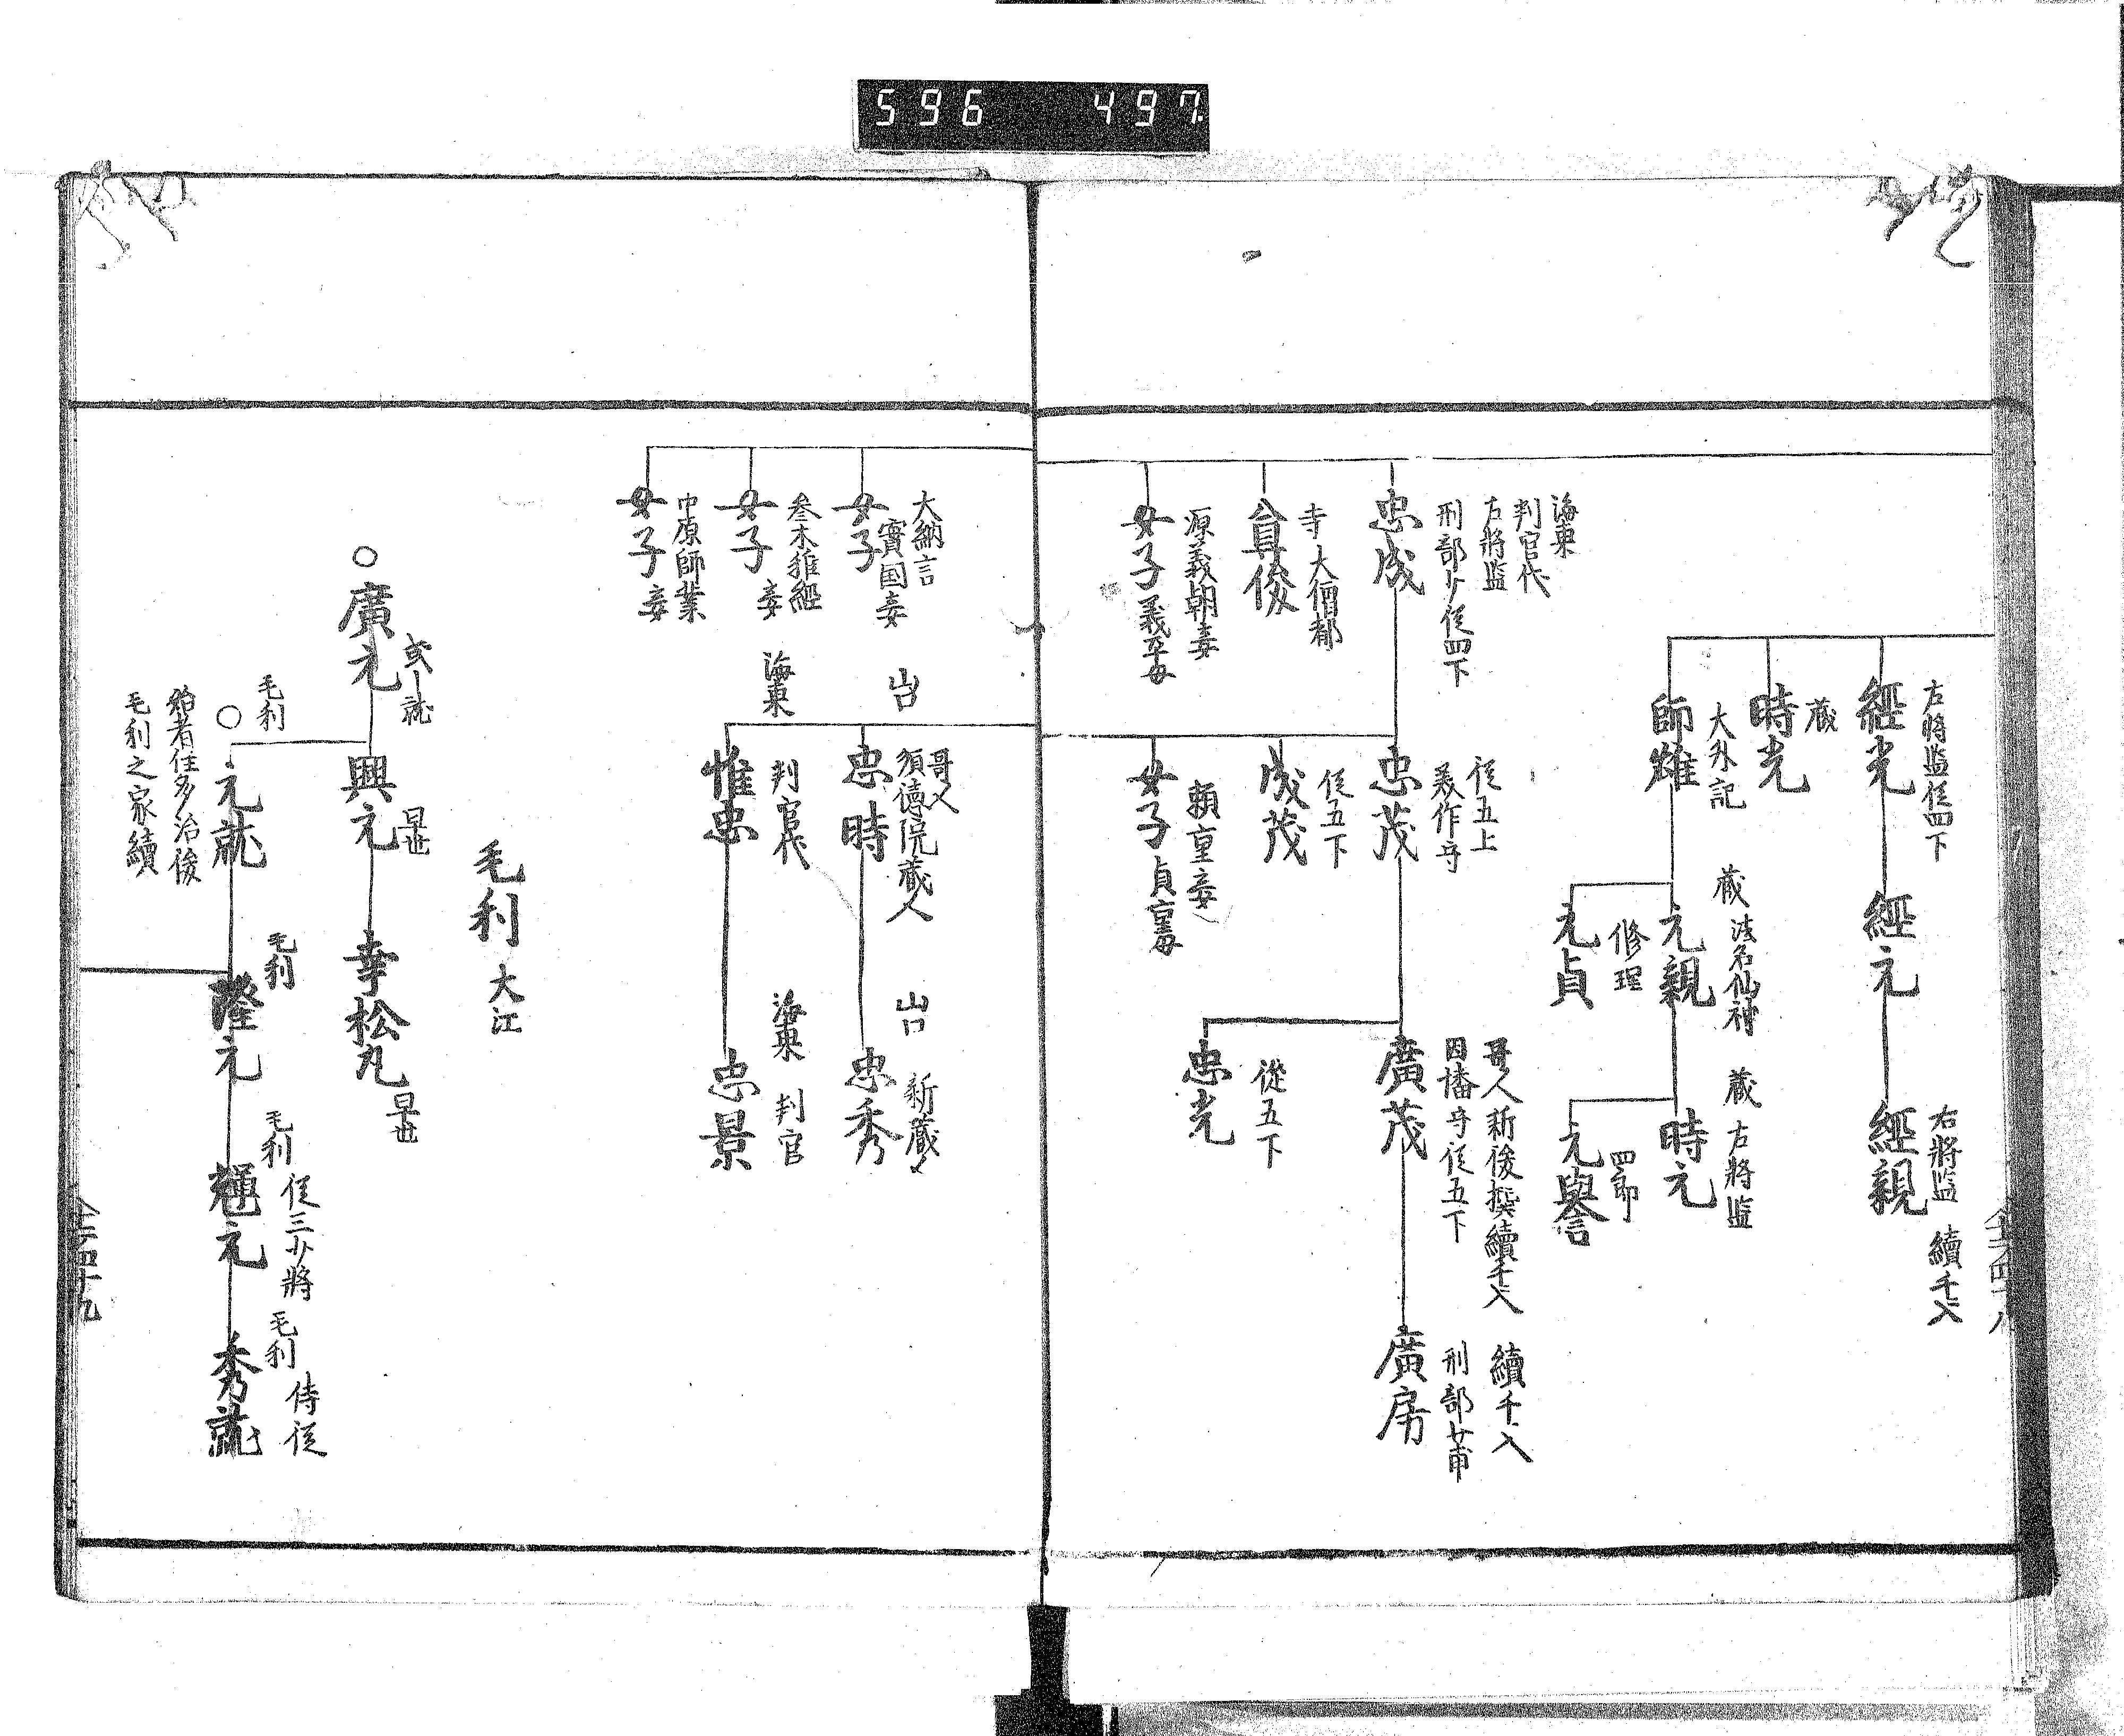 596 497
左將監従四下
經光
經元
右將監
續千入
經親
蔵
時光
大外記
師雄
蔵 法名仙禅
元親
修理
元貞
蔵 左將監
時元
四郎
元譽
海東
判官代
左將監
刑部少従四下
忠成
寺大僧都
貟俊
源義朝妾
女子 義平母
従五上
美作守
忠茂
従五下
成茂
頼重妾
女子
哥人新後撰續千入
因幡守従五下
廣茂
従五下
忠光
續千入
刑部少甫
廣房
大納言
實国妾
女子
参木雅經
妾
女子
中原師業
妾
女子
山口
哥人
須德院蔵人
忠時
海東
判官代
惟忠
山口
新蔵人
忠秀
海東
判官
忠景
毛利 大江
○廣元
或ー就
早世
興元
幸松丸 早世
毛利
○元就
始者住多治後
毛利之家續
毛利
隆元
毛利
従三少將
輝元
毛利
侍従
秀就